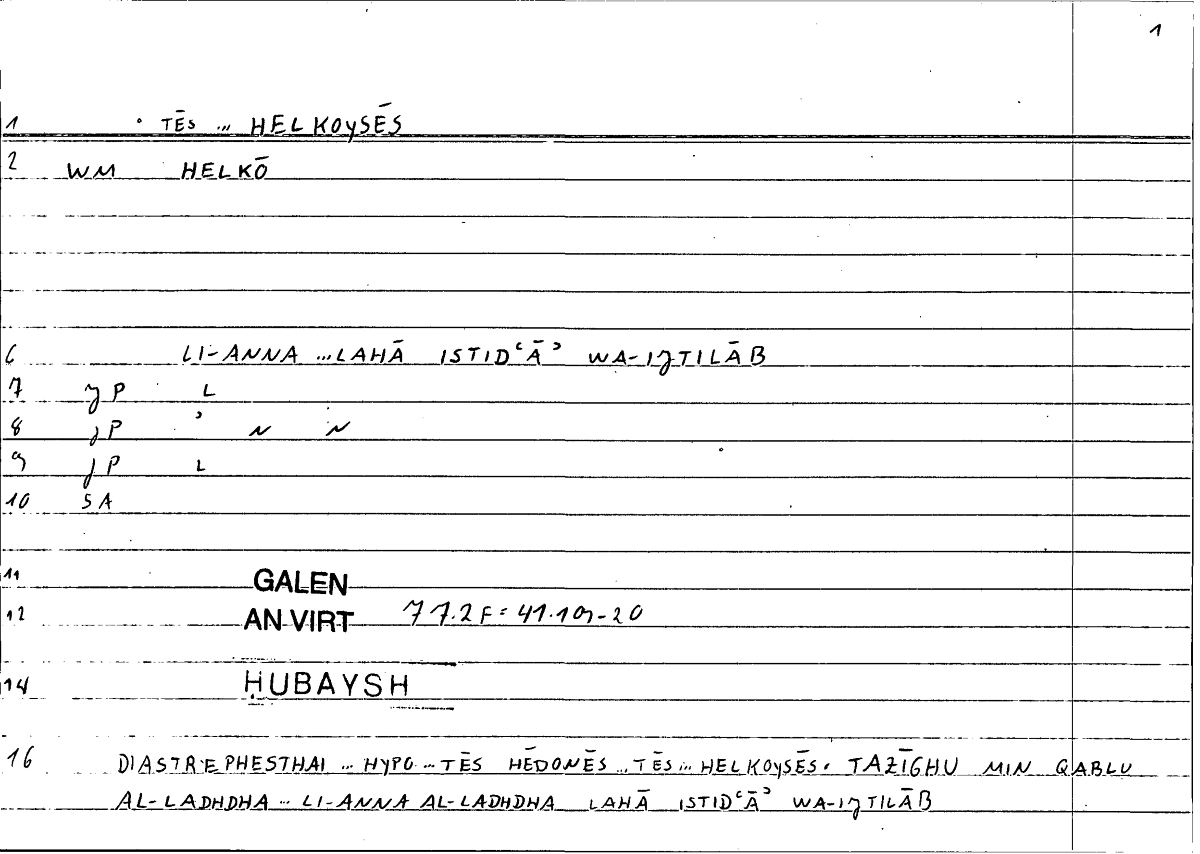 1
1 ° TĒS … HELKOYSĒS
2 WM HELKŌ
6 LI-ANNA …LAHĀ ISTIDʿĀʾ WA-IJTILĀB
7 JP L
8 JP ʾ N N
9 JP L
10 SA
11 GALEN
12 AN VIRT 77.2F = 41.19-20
14 ḤUBAYSH
16 DIASTREPHESTHAI … HYPO … TĒS HĒDONĒS … TĒS … HELKOYSĒS. TAZĪGHU MIN QABLU
AL-LADHDHA … LI-ANNA AL-LADHDHA LAHĀ ISTIDʿĀʾ WA-IJTILĀB